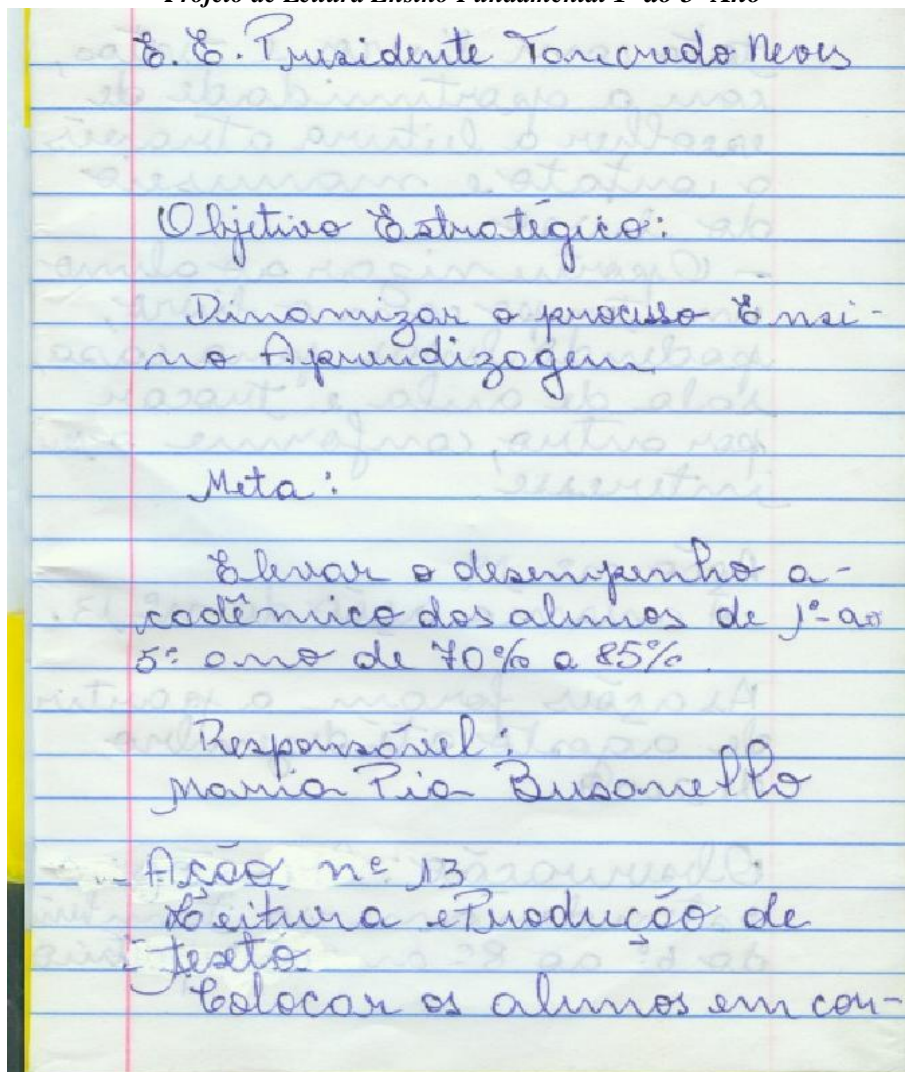 Projeto de Leitura Ensino Fundamental 1º ao 5º Ano
E. E. Presidente Tancredo Neves
Objetivo Estratégico:
Dinamizar o processo Ensi-
no Aprendizagem
Meta:
Elevar o desempenho a-
cadêmico dos alunos de 1º ao
5º ano de 70% a 85%.
Responsável:
Maria Pia Busanello
Ação nº 13
Leitura e Produção de
texto
Colocar os alunos em con-